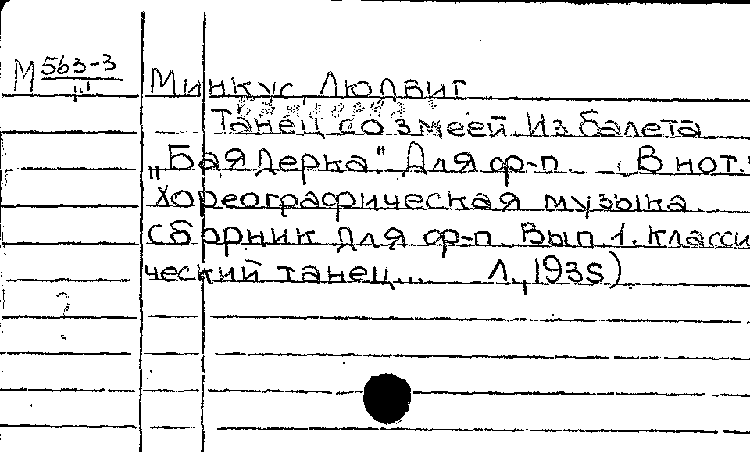 М 563-3
III
Минкус, Людвиг
Танец со змеей. Из балета
„Баядерка". Для ф-п. В нот.:
Хореографическая музыка.
Сборник для ф-п. Вып. 1. Класси
ческий танец... Л., 1935)